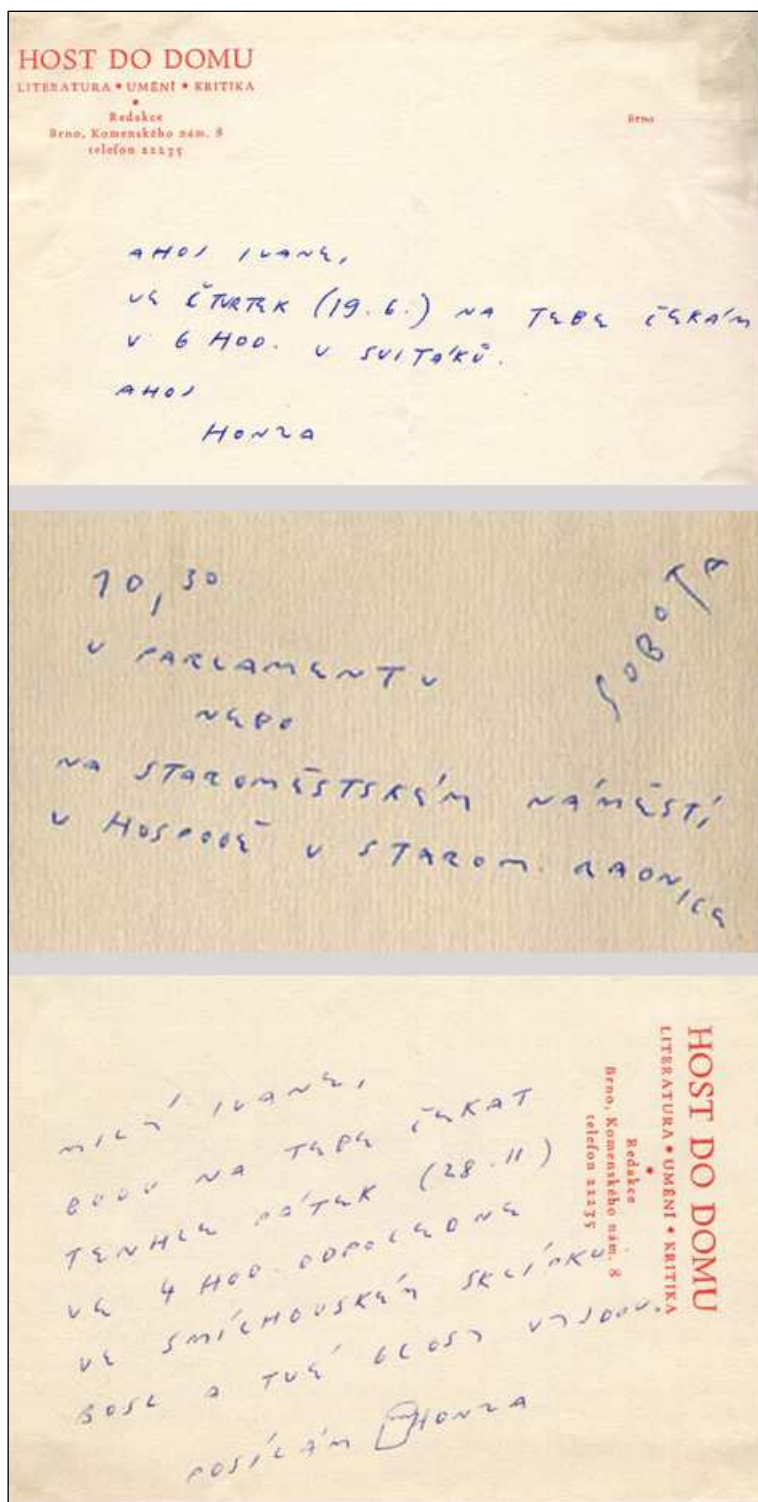 HOST DO DOMU
LITERATURA • UMĚNÍ • KRITIKA
Redakce
Brno, Komenského nám. 8
telefon 22235
Brno
AHOJ IVANE,
VE ČTVRTEK (19.6.) NA TEBE ČEKÁM
V 6 HOD. U SVITÁKŮ.
AHOJ
HONZA
10,30
SOBOTA
U PARLAMENTU
NEBO
NA STAROMĚSTSKÉM NÁMĚSTÍ
V HOSPODĚ V STAROM. RADNICE
HOST DO DOMU
LITERATURA • UMĚNÍ • KRITIKA
Redakce
Brno, Komenského nám. 8
telefon 22235
MILÝ IVANE,
BUDU NA TEBE ČEKAT
TENHLE PÁTEK (28.11)
VE 4 HOD. ODPOLEDNE
VE SMÍCHOVSKÉM SKLÍPKU.
BOSL A TVÉ GLOSY VYJDOU.
POSÍLÁM HONZA